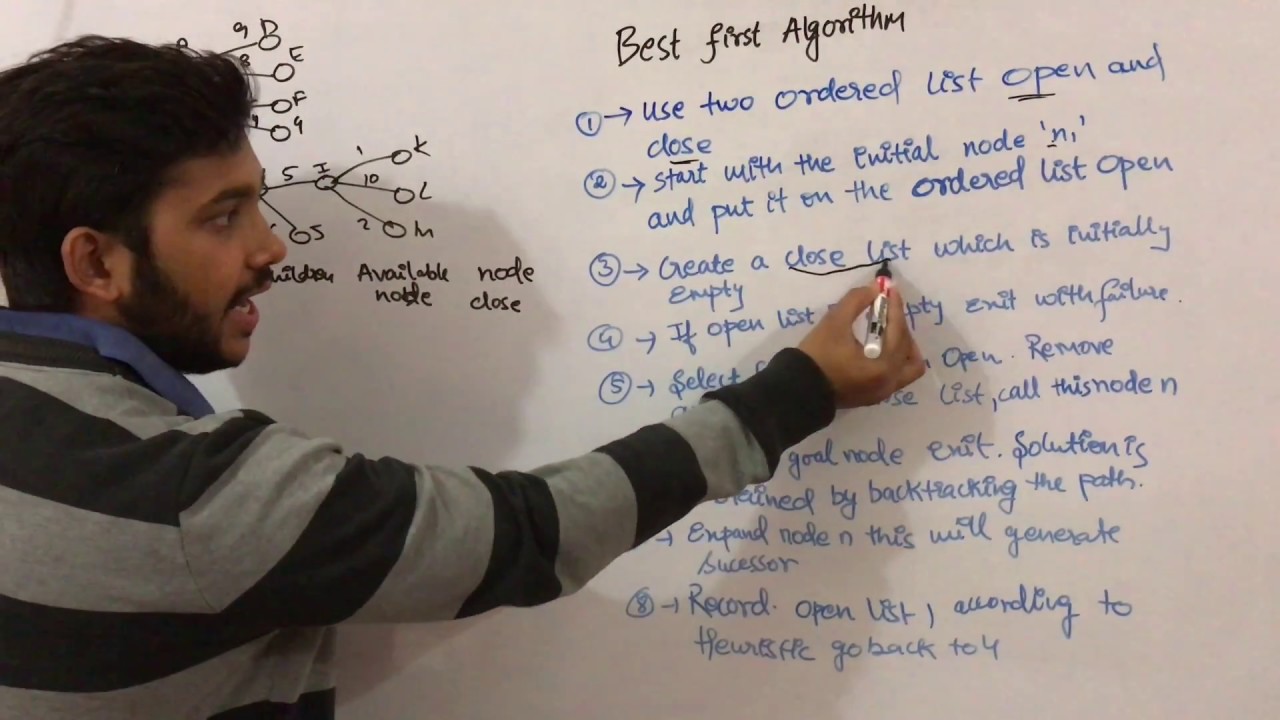 Best first Algorithm
① → Use two ordered list open and
close
② → start with the initial node 'n₁'
and put it on the ordered list open
③ → Create a close list which is initially
Empty
④ → If open list exit with failure.
⑤ → Select Open. Remove
list, call this node n
goal node exit. Solution is
by backtracking the path.
→ Expand node n this will generate
sucessor
⑧ → Record. open list, according to
Heuristic go back to 4
9 B
8 E
F
G
5 I
1 K
10 L
2 M
J
Available node
node close